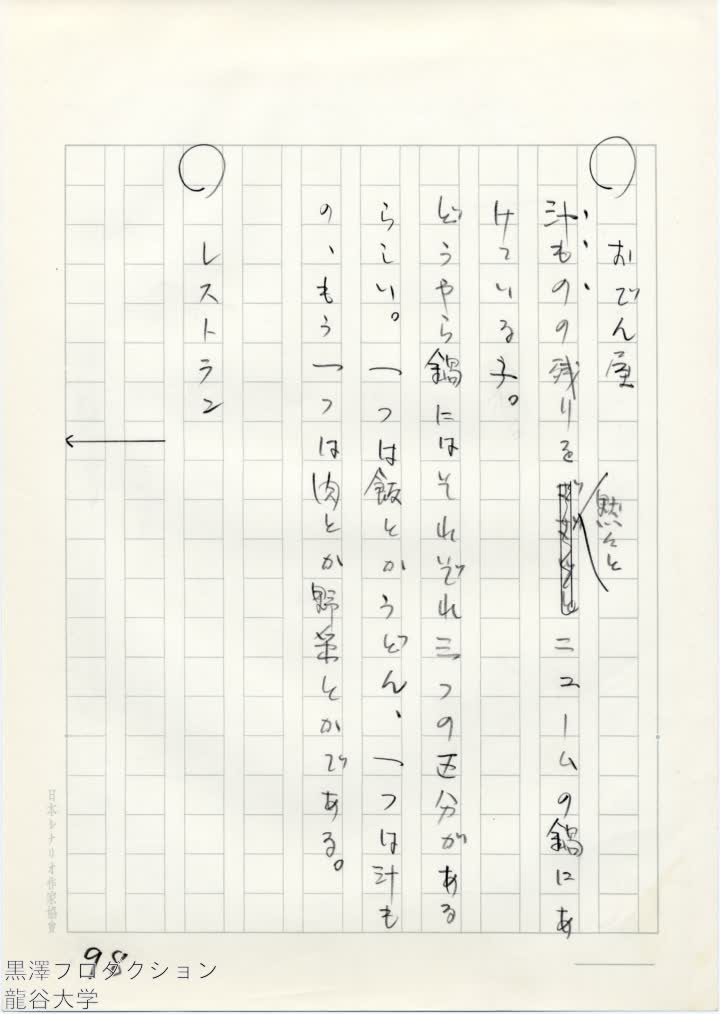 おでん屋
汁ものの残りを黙々とニュームの鍋にあ
けている子。
どうやら鍋にはそれぞれ三つの区分がある
らしい。一つは飯とかうどん、一つは汁も
の、もう一つは肉とか野菜とかである。
レストラン
日本シナリオ作家協會
98
黒澤プロダクション
龍谷大学